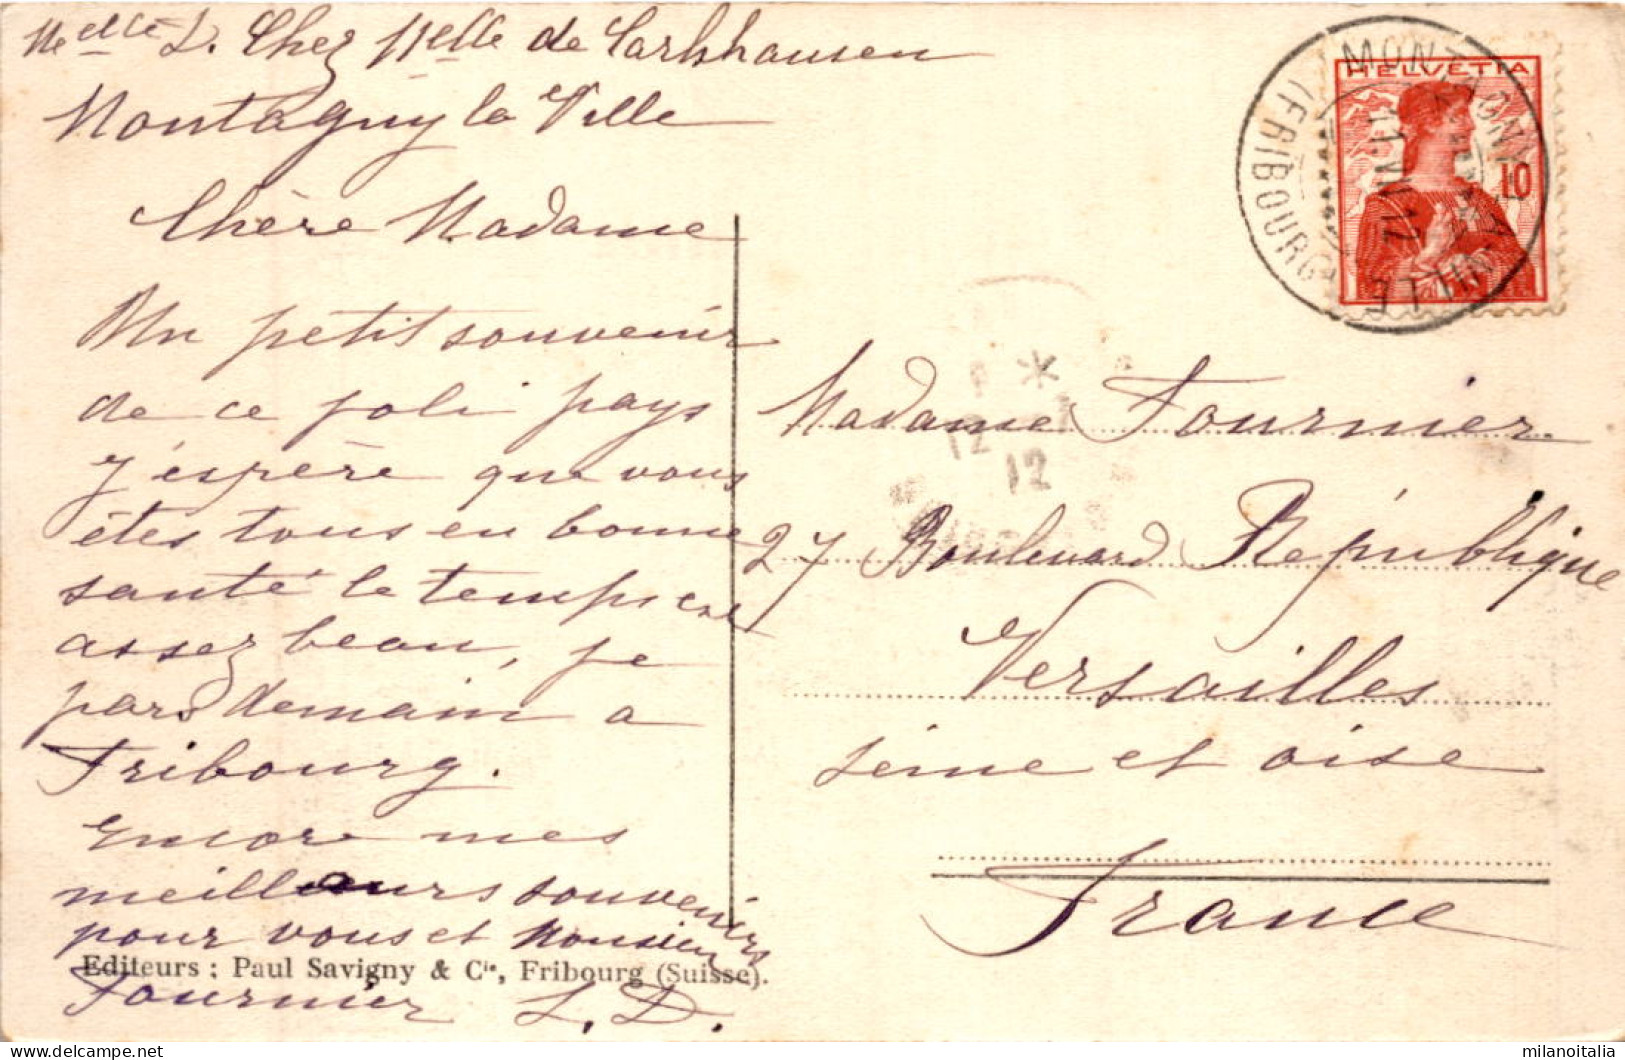 Melle L. Chez Melle de Carlshausen
Montagny la Ville
Chère Madame
Un petit souvenir
de ce joli pays
j'espère que vous
êtes tous en bonne
santé le temps est
assez beau, je
pars demain a
Fribourg.
Encore mes
meilleurs souvenirs
pour vous et Monsieur
Fournier L. D.
Editeurs : Paul Savigny & Cie, Fribourg (Suisse).
HELVETIA
10
MONTAGNY-LA-VILLE
(FRIBOURG)
11.VII.12
12 - 7
12
Madame Fournier
27 Boulevard République
Versailles
Seine et oise
France
milanoitalia